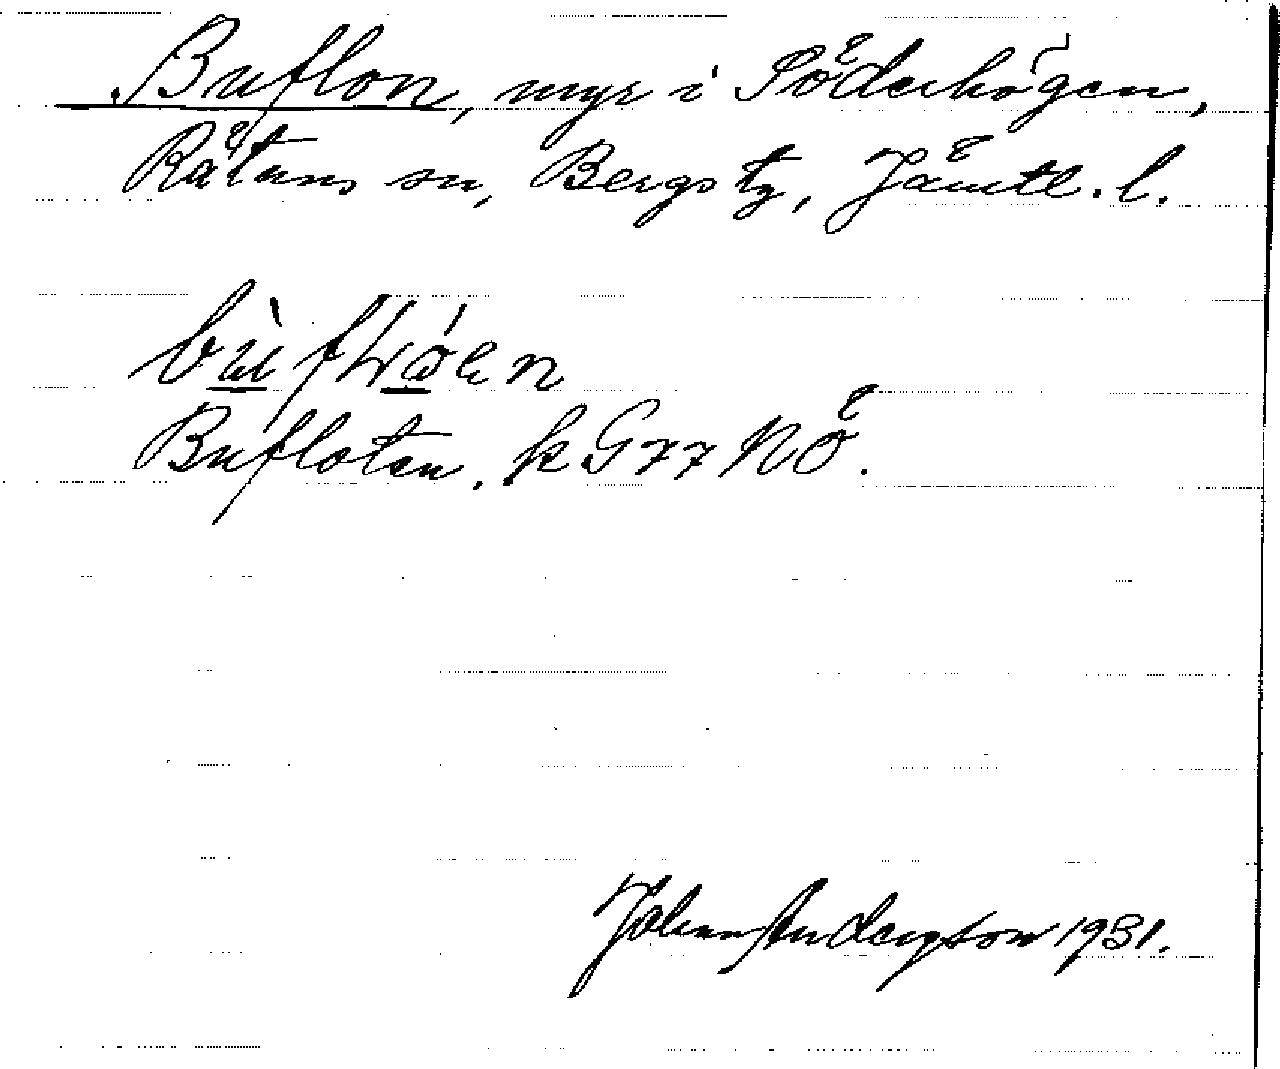 Buflon, myr i Söderhögen,
Rätans sn, Bergs tg, Jämtl. l.
Bufloten. k G 77 NÖ.
Johan Anderson 1931.